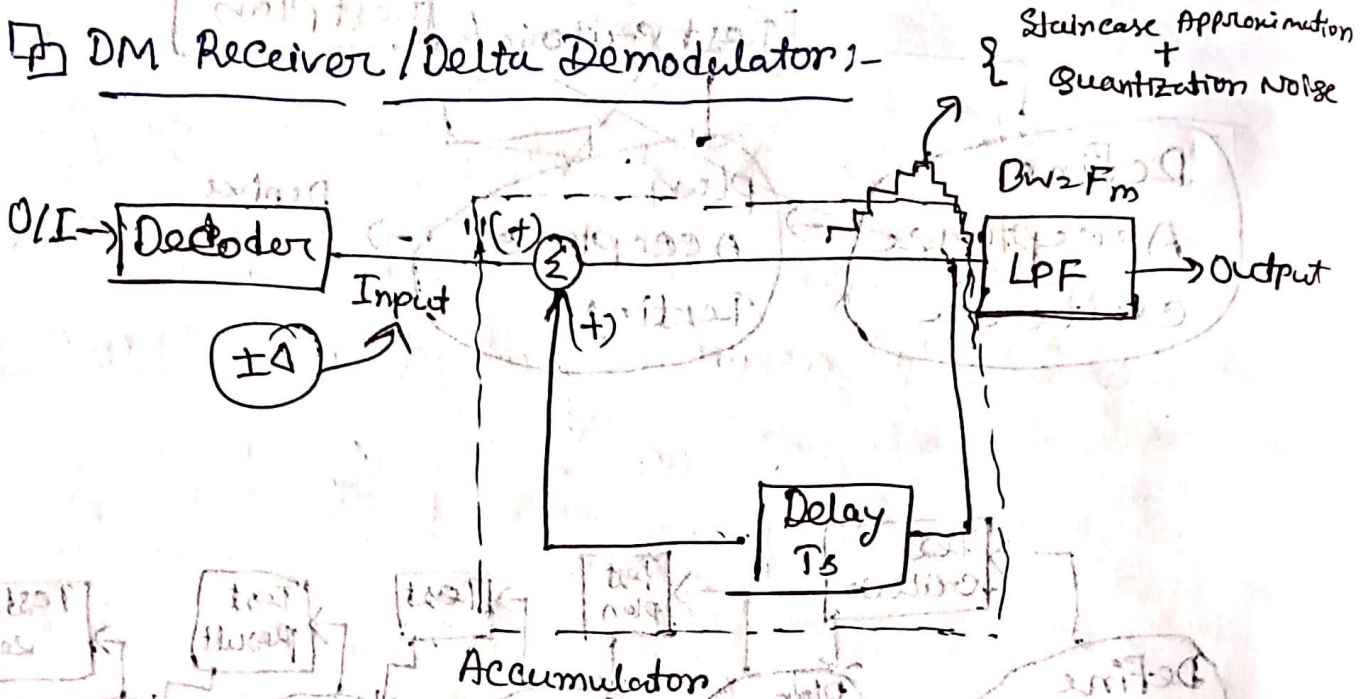 DM Receiver / Delta Demodulator :-
{ Staincase Approximution
+
Quantization Noise
O/I → Decoder
Input
±Δ
(+)
Σ
(+)
BW = Fm
LPF
→ Output
Delay
Ts
Accumulator